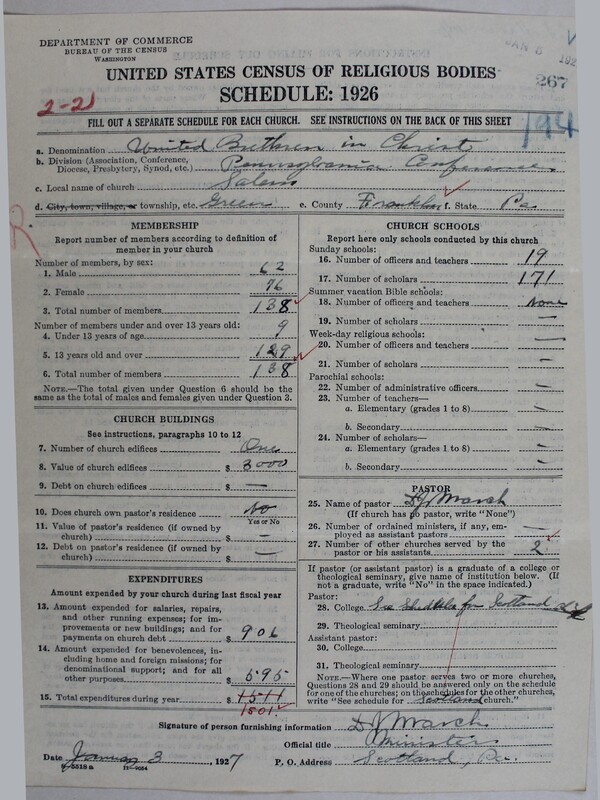 DEPARTMENT OF COMMERCE
BUREAU OF THE CENSUS
WASHINGTON
JAN 8 192
267
UNITED STATES CENSUS OF RELIGIOUS BODIES
SCHEDULE: 1926
2-21
194
FILL OUT A SEPARATE SCHEDULE FOR EACH CHURCH. SEE INSTRUCTIONS ON THE BACK OF THIS SHEET
a. Denomination United Brethren in Christ
b. Division (Association, Conference, Diocese, Presbytery, Synod, etc.) Pennsylvania Conference
c. Local name of church Salem
d. City, town, village, or township, etc. Green e. County Franklin f. State Pa.
R
MEMBERSHIP
Report number of members according to definition of member in your church
Number of members, by sex:
1. Male 62
2. Female 76
3. Total number of members 138
Number of members under and over 13 years old:
4. Under 13 years of age 9
5. 13 years old and over 129
6. Total number of members 138
NOTE.—The total given under Question 6 should be the same as the total of males and females given under Question 3.
CHURCH BUILDINGS
See instructions, paragraphs 10 to 12
7. Number of church edifices One
8. Value of church edifices $ 3000
9. Debt on church edifices $ —
10. Does church own pastor's residence? No
Yes or No
11. Value of pastor's residence (if owned by church) $ —
12. Debt on pastor's residence (if owned by church) $ —
EXPENDITURES
Amount expended by your church during last fiscal year
13. Amount expended for salaries, repairs, and other running expenses; for improvements or new buildings; and for payments on church debt $ 906
14. Amount expended for benevolences, including home and foreign missions; for denominational support; and for all other purposes $ 595
15. Total expenditures during year $ 1511
1501
CHURCH SCHOOLS
Report here only schools conducted by this church
Sunday schools:
16. Number of officers and teachers 19
17. Number of scholars 171
Summer vacation Bible schools:
18. Number of officers and teachers None
19. Number of scholars —
Week-day religious schools:
20. Number of officers and teachers —
21. Number of scholars —
Parochial schools:
22. Number of administrative officers —
23. Number of teachers—
a. Elementary (grades 1 to 8) —
b. Secondary —
24. Number of scholars—
a. Elementary (grades 1 to 8) —
b. Secondary —
PASTOR
25. Name of pastor March
(If church has no pastor, write "None")
26. Number of ordained ministers, if any, employed as assistant pastors —
27. Number of other churches served by the pastor or his assistants 2
If pastor (or assistant pastor) is a graduate of a college or theological seminary, give name of institution below. (If not a graduate, write "No" in the space indicated.)
Pastor:
28. College See schedule for Scotland
29. Theological seminary
Assistant pastor:
30. College
31. Theological seminary
NOTE.—Where one pastor serves two or more churches, Questions 28 and 29 should be answered only on the schedule for one of the churches; on the schedules for the other churches, write "See schedule for Scotland church."
Signature of person furnishing information March
Official title Minister
Date January 3, 1927 P. O. Address Scotland, Pa.